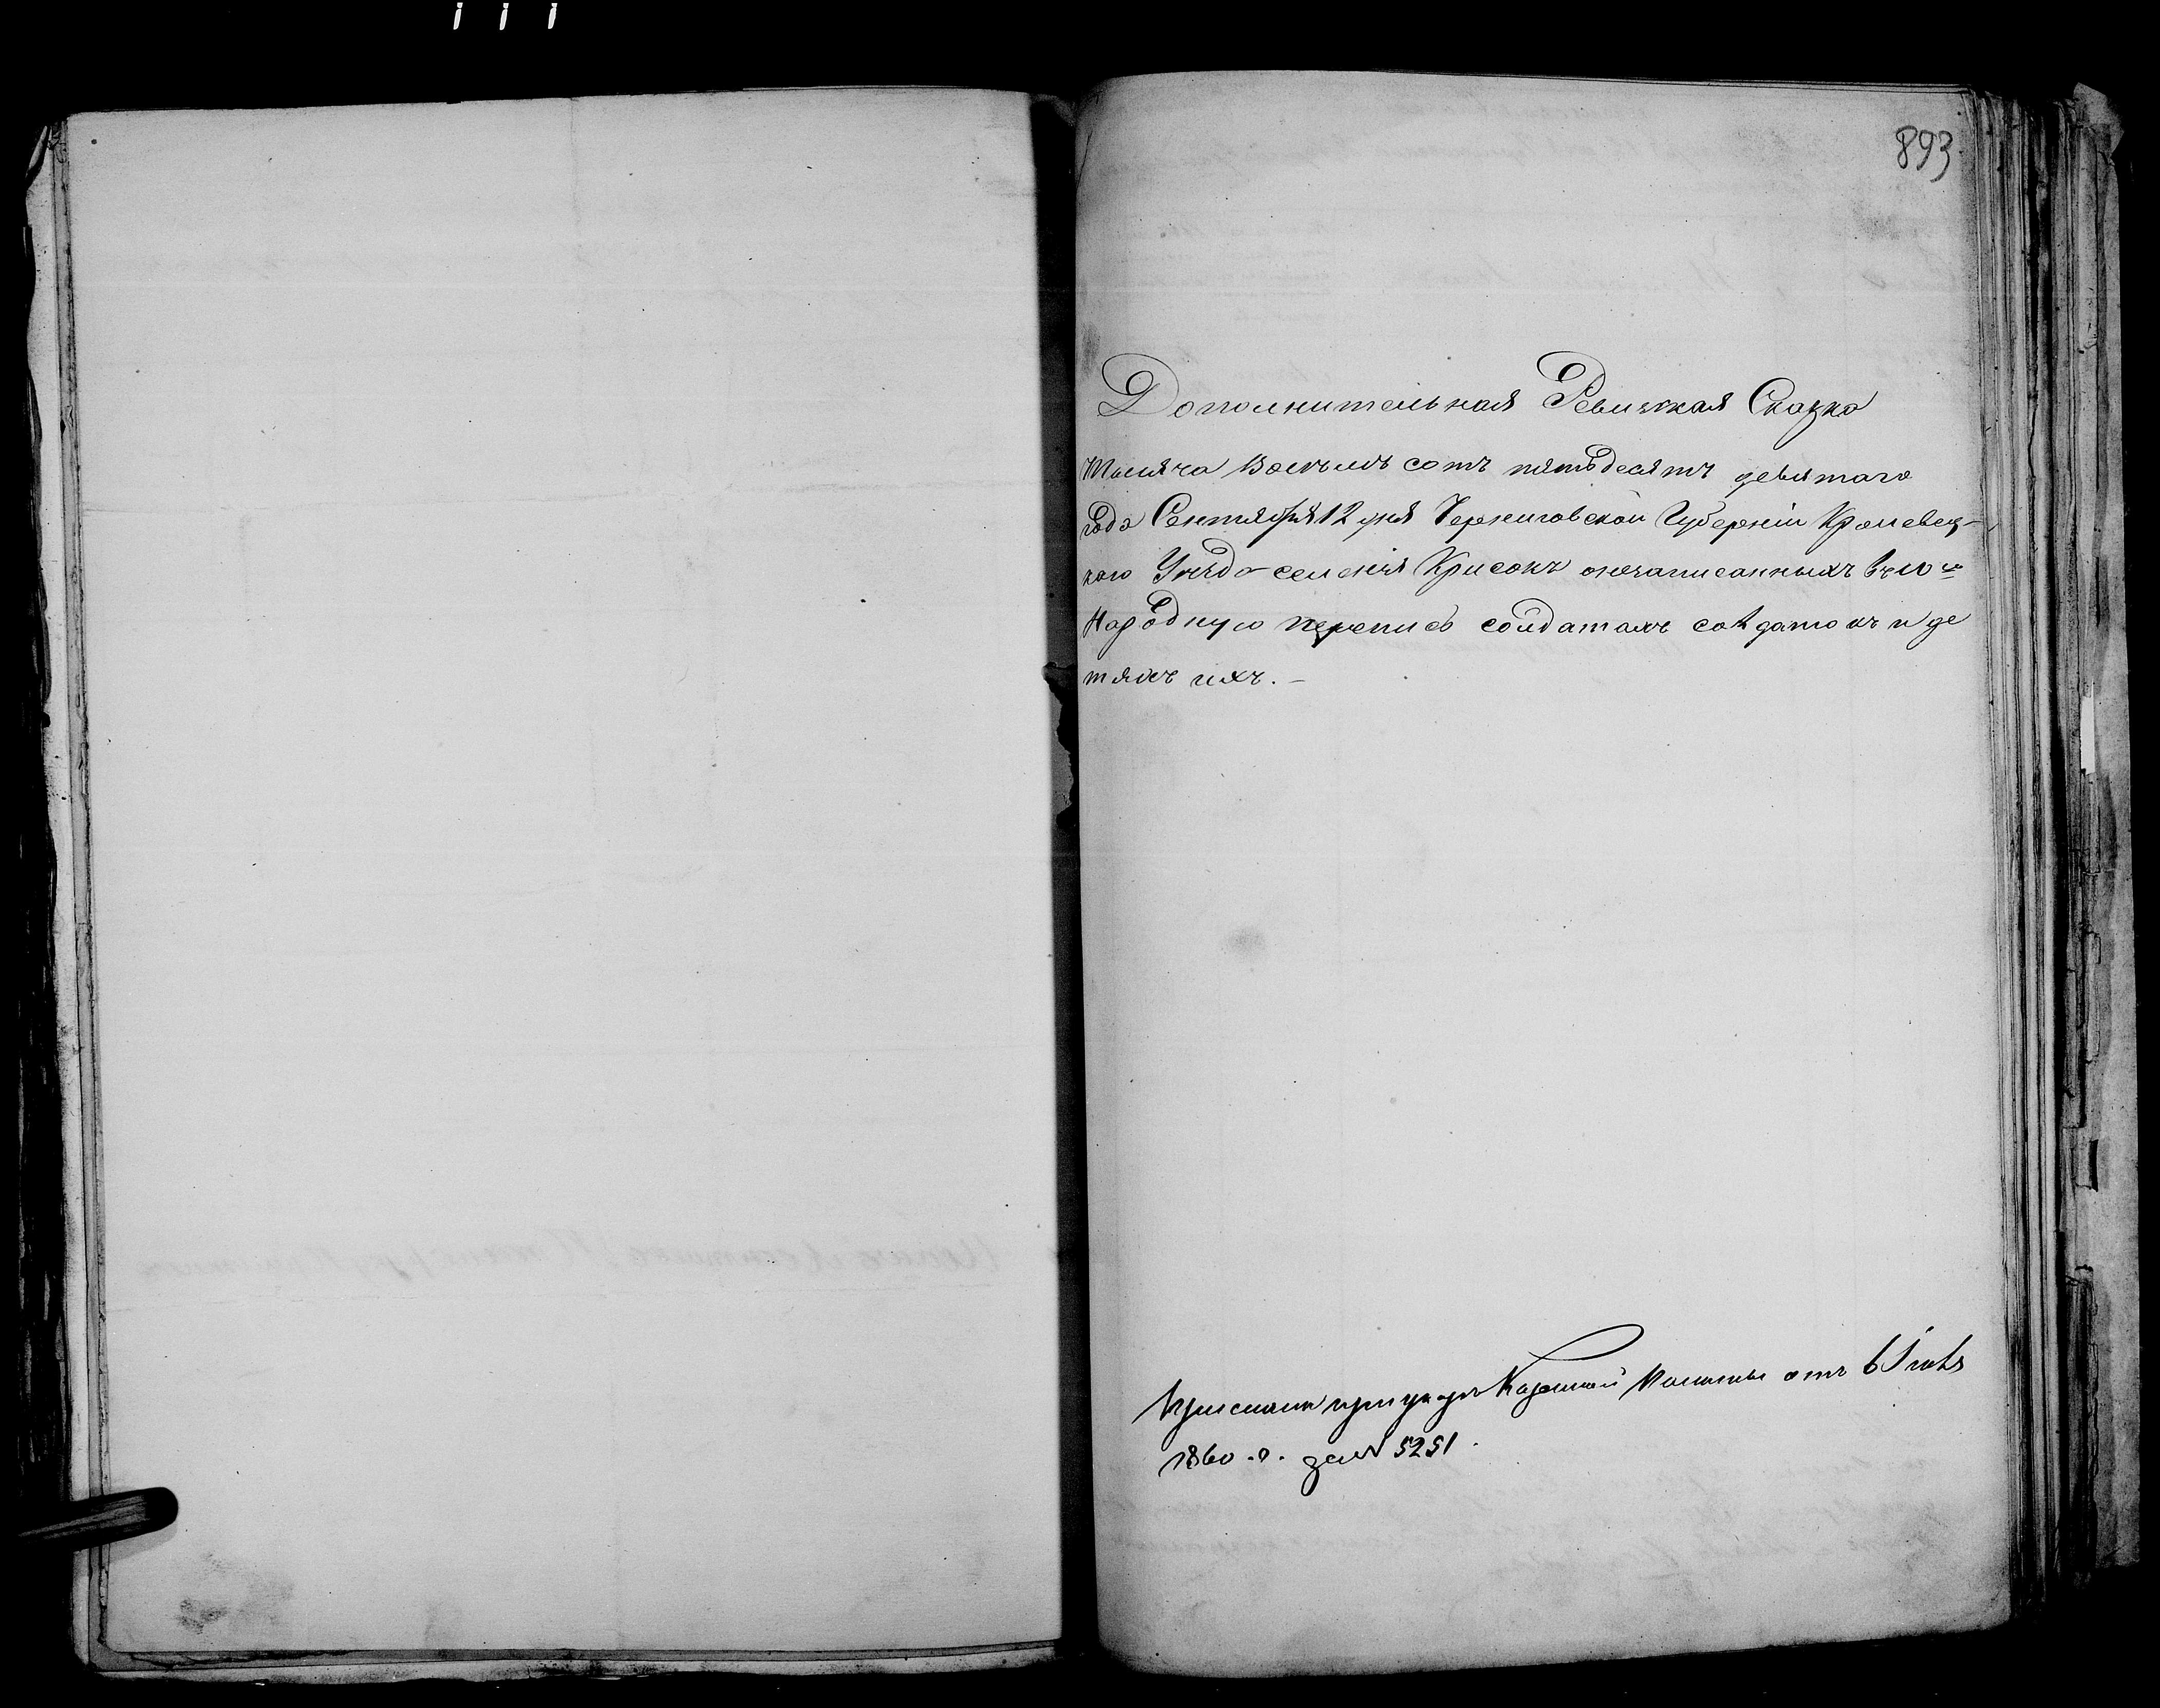 893
Дополнительная Ревизская Сказка
Тысяча восемь сотъ пятьдесятъ девятаго
года Сентября 12 дня Черниговской Губерніи Кролевец-
каго Уѣзда селенія Крисокъ онезаписанныхъ въ 10ю
Народную перепись солдатахъ солдаткъ и де
тяхъ ихъ. –
При указѣ Казенной Палаты отъ 6
1860 г. за № 5251.